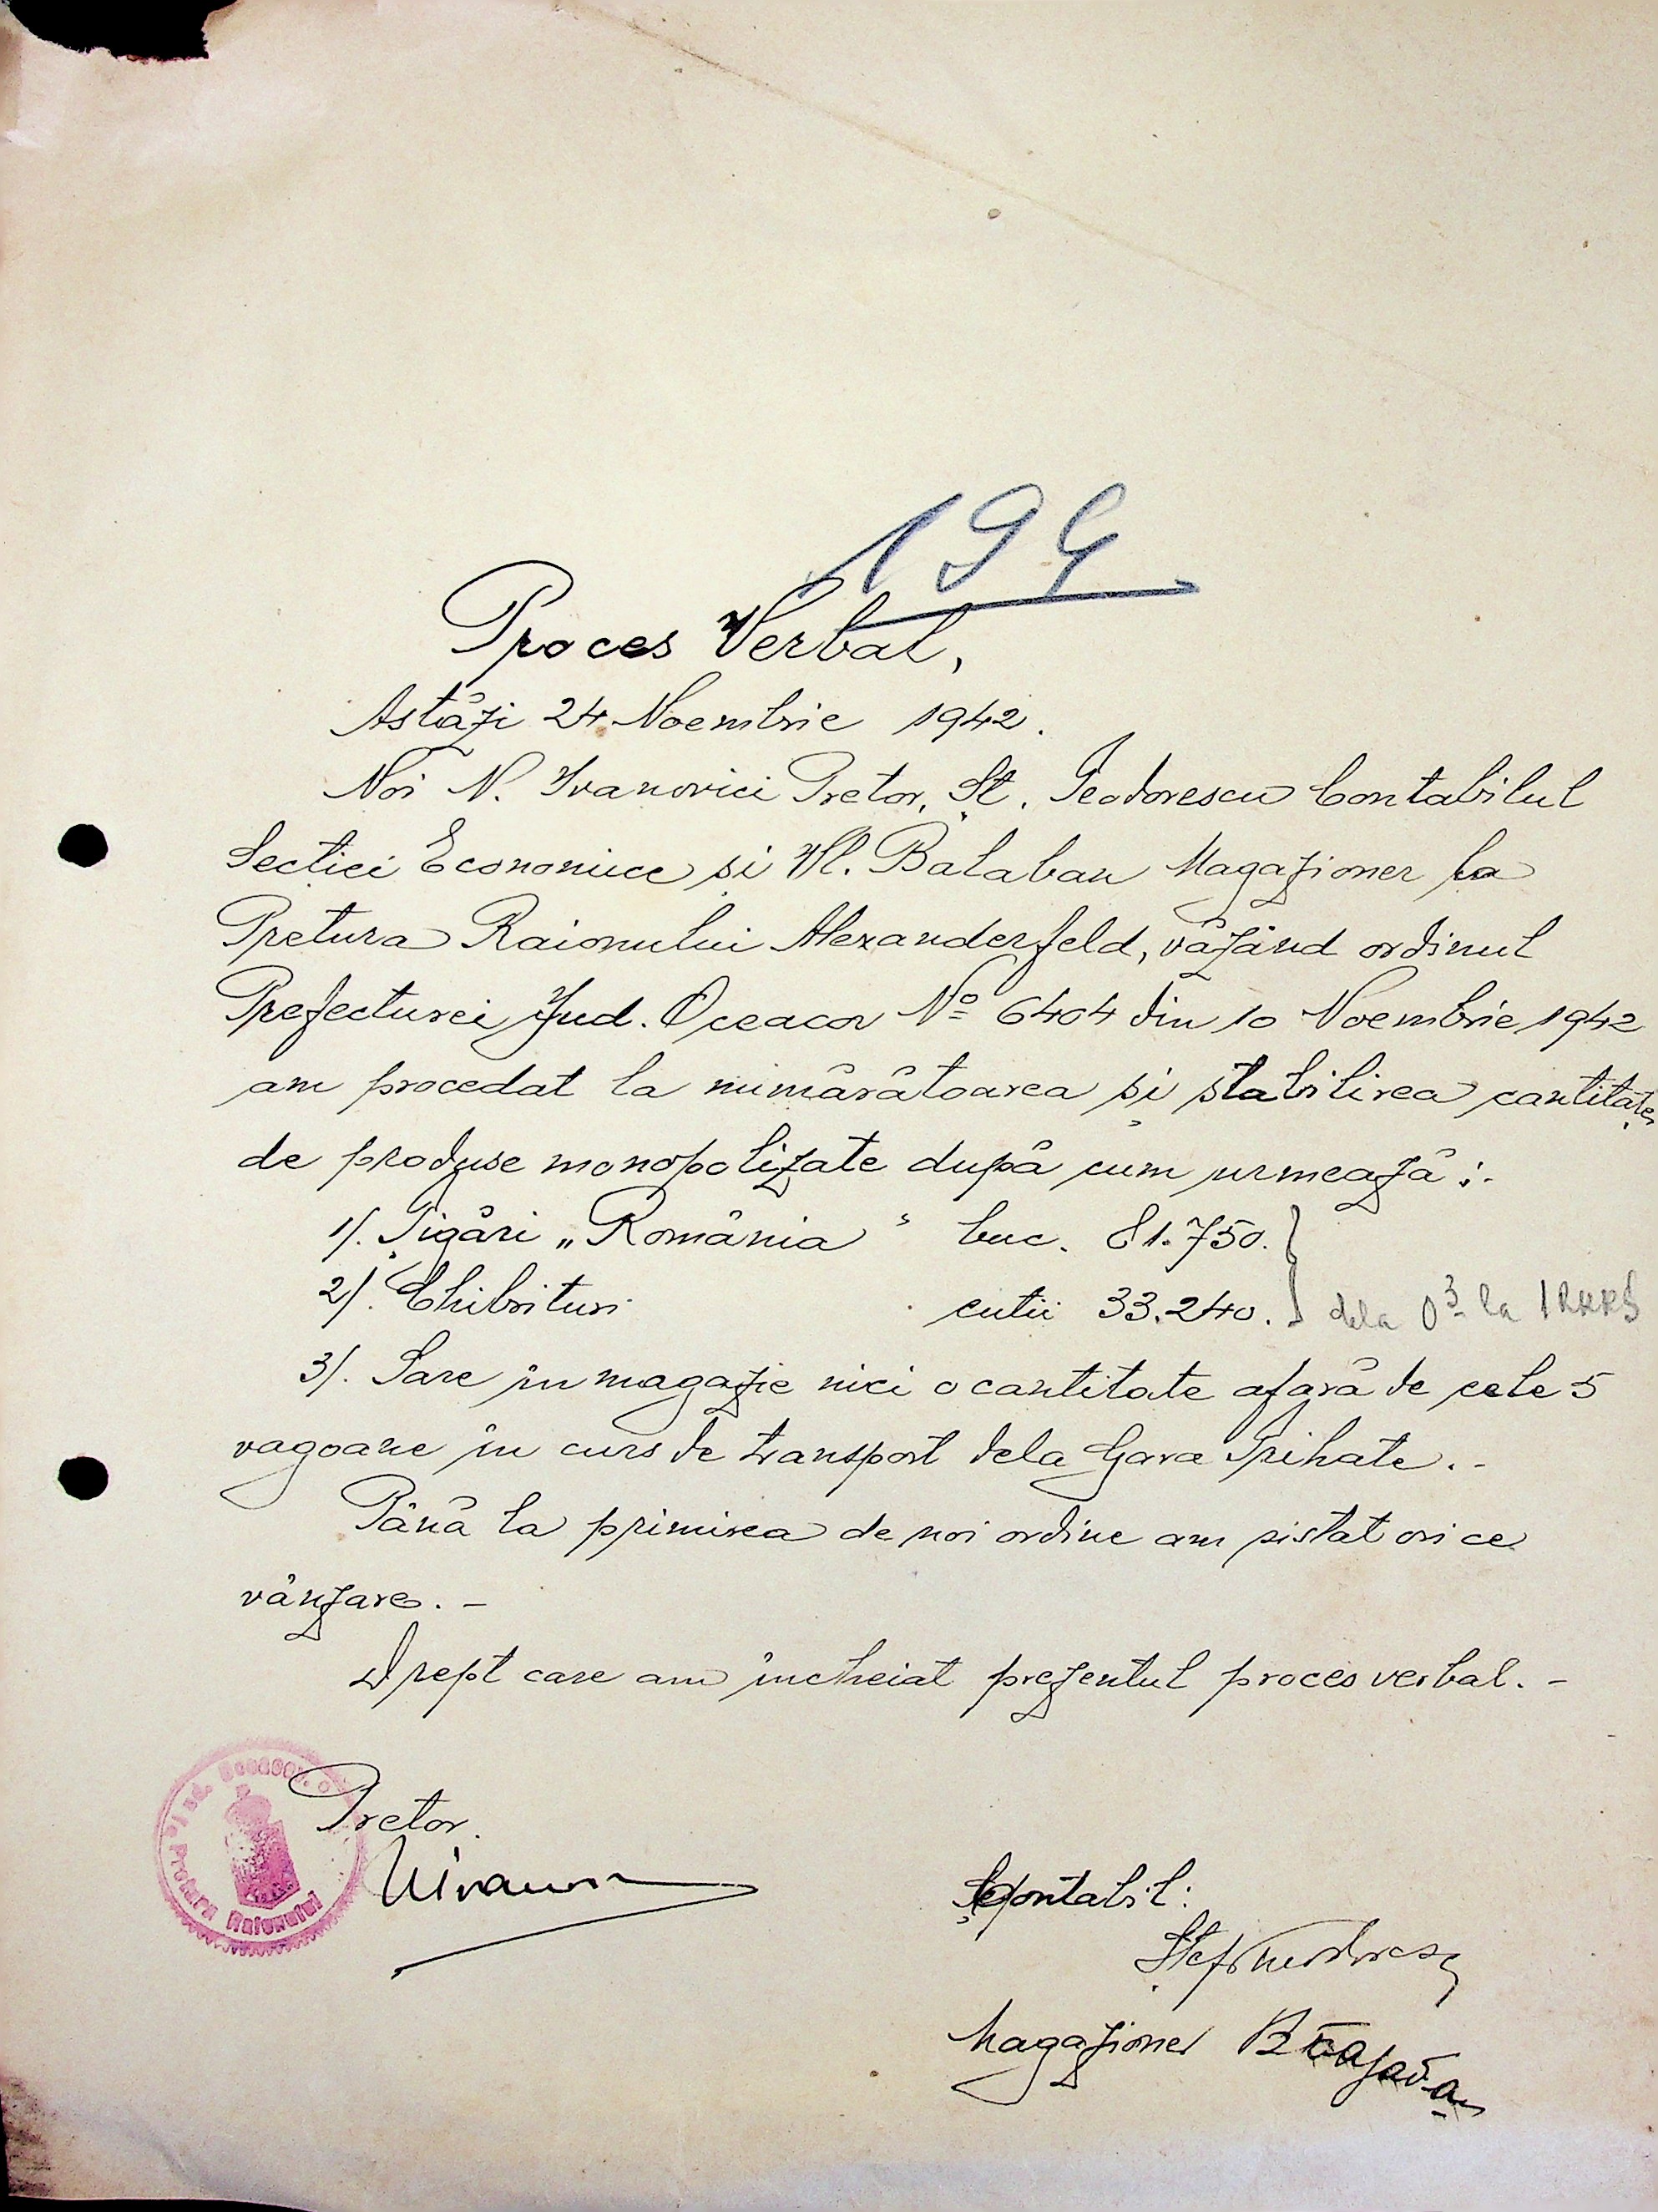 194
Proces Verbal,
Astăzi 24 Noembrie 1942.
Noi N. Ivanovici Pretor, Șt. Teodorescu Contabilul
Secției Economice și Vl. Balaban Magazioner la
Pretura Raionului Alexanderfeld, văzând ordinul
Prefecturei Jud. Oceacov No 6404 din 10 Noembrie 1942
am procedat la numărătoarea și stabilirea cantităței
de produse monopolizate după cum urmează :.
1/. Țigări „România" buc. 81.750.
2/. Chibrituri cutii 33.240. dela la
3/. Sare în magazie nici o cantitate afară de cele 5
vagoane în curs de transport dela Gara Trihate. -
Până la primirea de noi ordine am sistat ori ce
vânzare. -
Drept care am încheiat prezentul proces verbal. -
Pretura Raionului
Pretor.
Contabil:
Magazioner